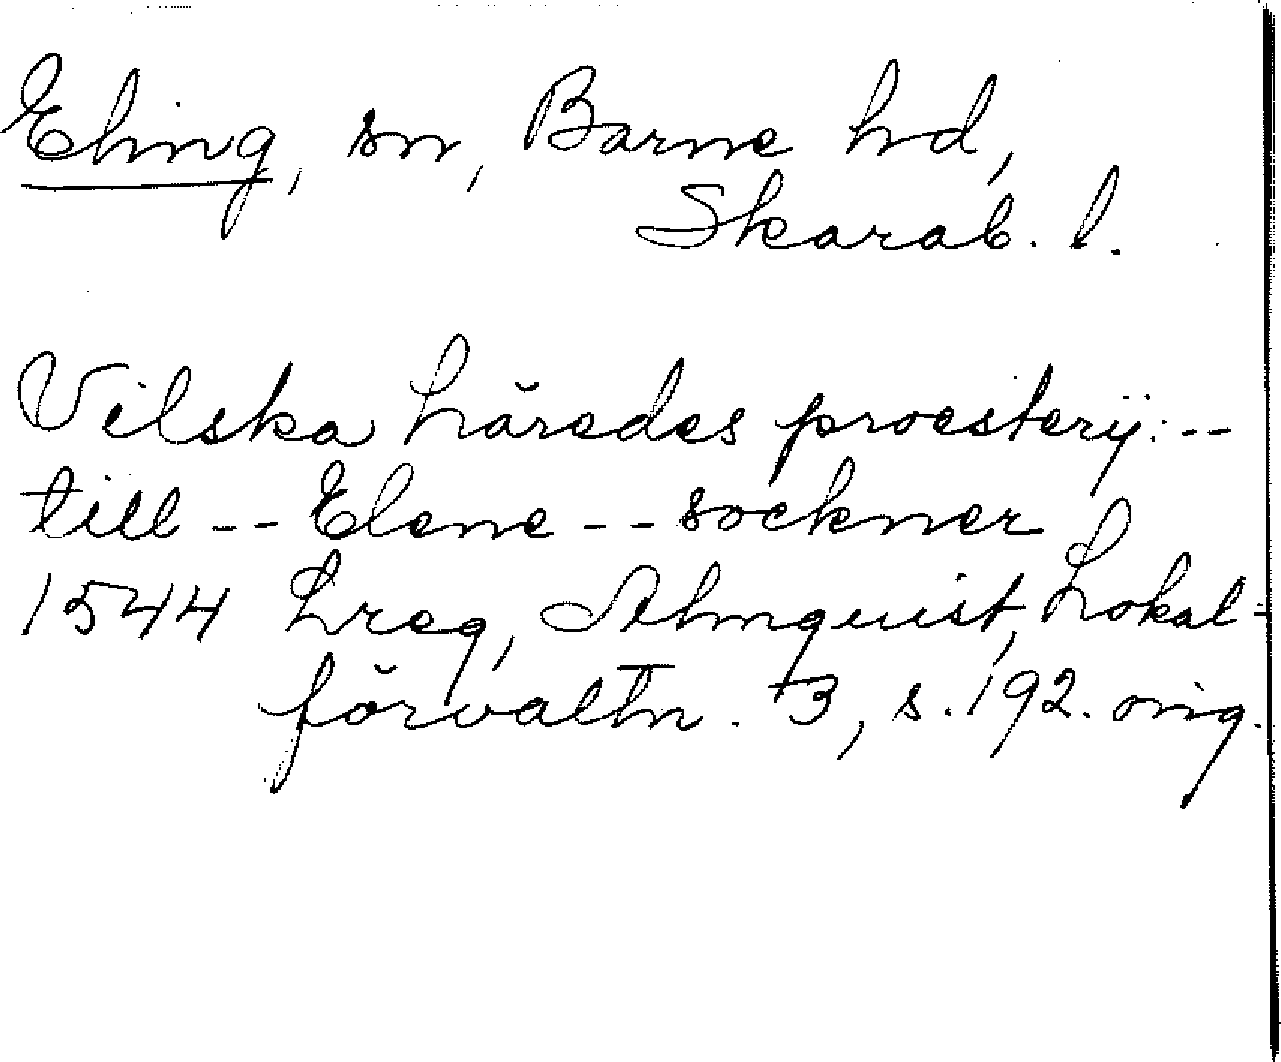 Eling, sn, Barne hd,
Skarab. l.
Vilska häredes proesterij: --
till -- Elene -- sockner
1544 Lreg, Almquist, Lokal-
förvaltn. 3, s. 192. orig.